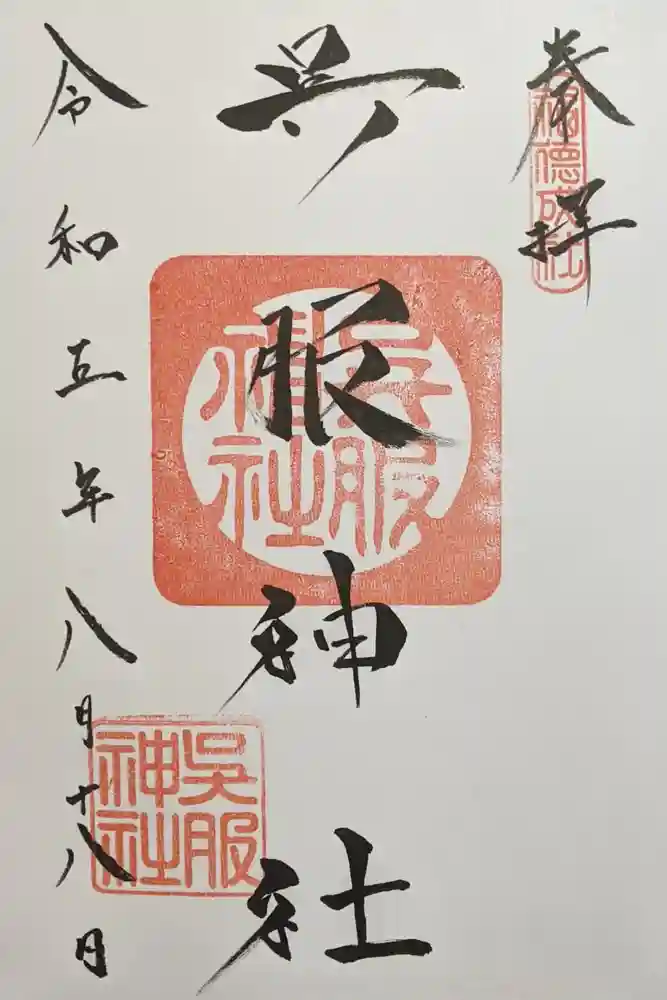 奉拝
福德成社
呉服神社
呉服神社
呉服神社
令和五年八月十八日